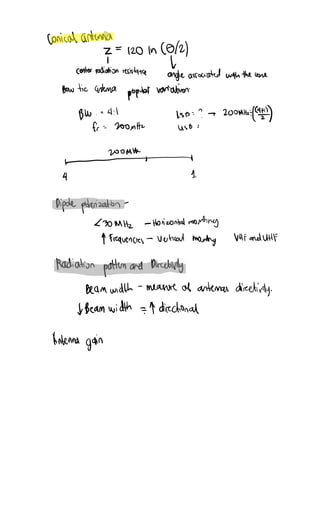 Conical antenna
Z = 120 ln (θ/2)
center radiation resistance
angle associated with the cone
Bow tie antenna popular variation
BW = 4:1
fr = 200MHz
LSB = ? → 200MHz = ((4+1)/2)
USB =
200MHz
4 1
Dipole polarization -
<30 MHz - Horizontal mounting
↑ Frequencies - Vertical VHF and UHF
Radiation pattern and Directivity
Beam width - measure of antennas directivity.
↓ Beam width = ↑ directional
Antenna gain